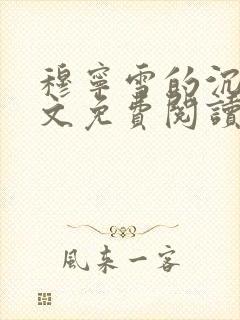 穆寧雪的沉
文免費閱讀
風來一客